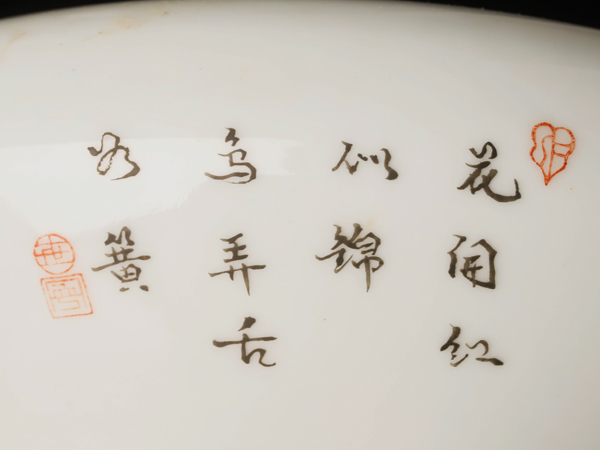 花開紅
似錦
鳥弄舌
如簧